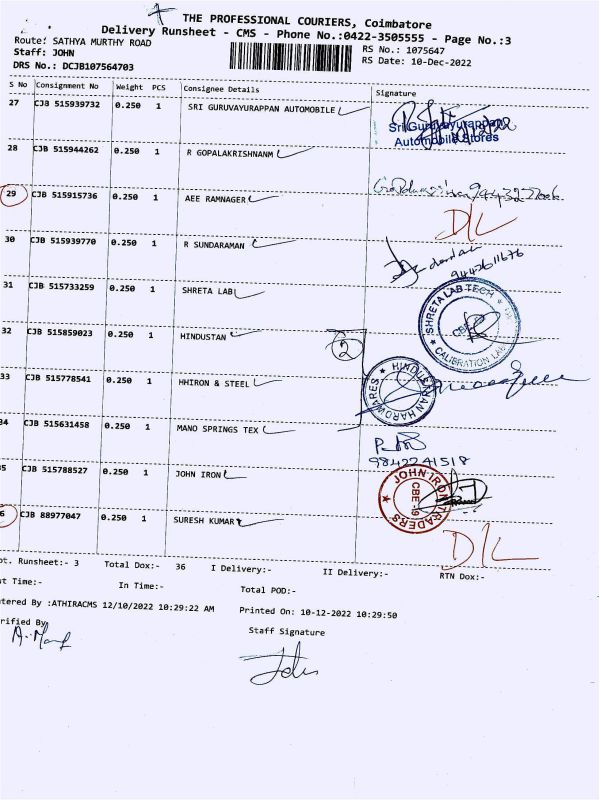 THE PROFESSIONAL COURIERS, Coimbatore
Delivery Runsheet - CMS - Phone No.:0422-3505555 - Page No.:3
Route: SATHYA MURTHY ROAD
RS No.: 1075647
Staff: JOHN
RS Date: 10-Dec-2022
DRS No.: DCJB107564703
S No Consignment No Weight PCS Consignee Details Signature
27 CJB 515939732 0.250 1 SRI GURUVAYURAPPAN AUTOMOBILE
Sri Guruvayurappan
Automobile Stores
28 CJB 515944262 0.250 1 R GOPALAKRISHNANM
29 CJB 515915736 0.250 1 AEE RAMNAGER
D/L
30 CJB 515939770 0.250 1 R SUNDARAMAN
9442611676
31 CJB 515733259 0.250 1 SHRETA LAB
SHRETA LAB TECH
CALIBRATION LAB
32 CJB 515859023 0.250 1 HINDUSTAN
2
33 CJB 515778541 0.250 1 HHIRON & STEEL
HINDUSTHAN HARDWARES
34 CJB 515631458 0.250 1 MANO SPRINGS TEX
9842241518
35 CJB 515788527 0.250 1 JOHN IRON
JOHN IRON TRADERS
CBE-9
6 CJB 88977047 0.250 1 SURESH KUMAR
D/L
pt. Runsheet:- 3 Total Dox:- 36 I Delivery:- II Delivery:- RTN Dox:-
ut Time:- In Time:- Total POD:-
tered By :ATHIRACMS 12/10/2022 10:29:22 AM Printed On: 10-12-2022 10:29:50
rified By
Staff Signature
John